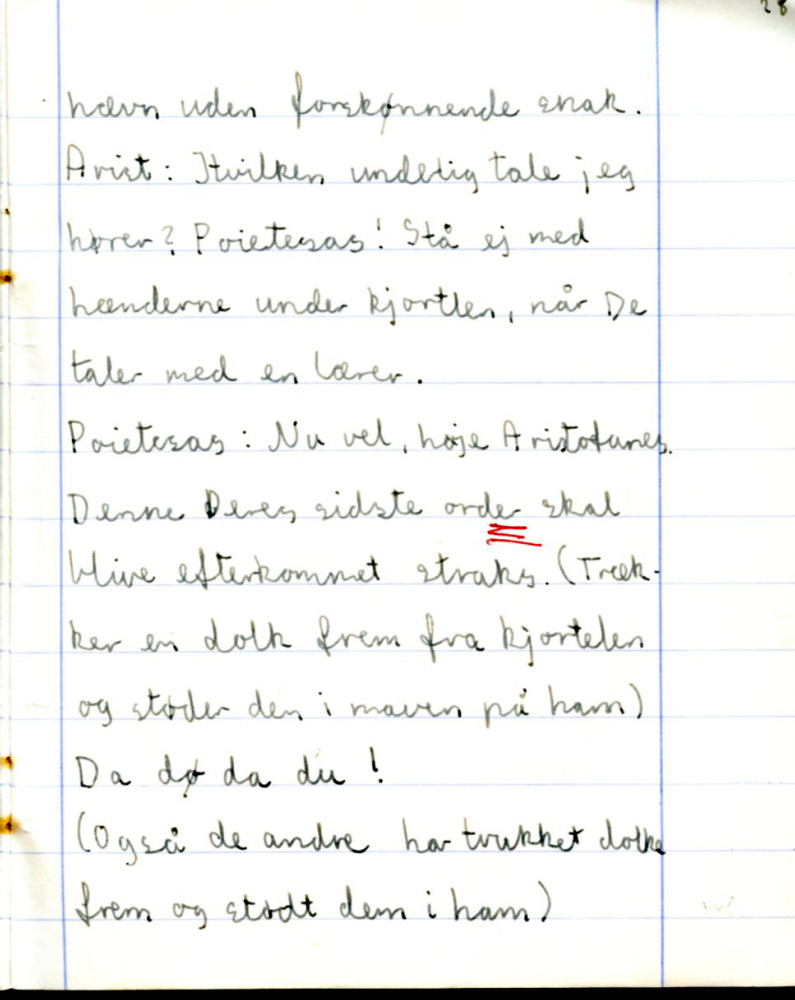 28
hævn uden forskønnende snak.
Arist: Hvilken underlig tale jeg
hører? Poietesas! Stå ej med
hænderne under kjortlen, når De
taler med en lærer.
Poietesas: Nu vel, høje Aristofanes.
Denne Deres sidste order skal
blive efterkommet straks. (Træk-
ker en dolk frem fra kjortelen
og støder den i maven på ham)
Da dø da du!
(Også de andre har trukket dolke
frem og stødt dem i ham)